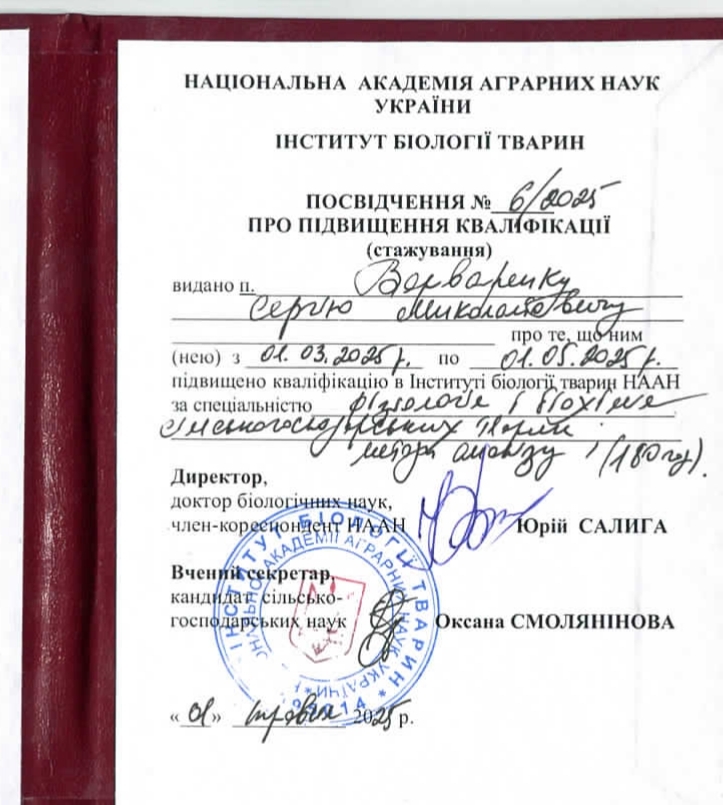 НАЦІОНАЛЬНА АКАДЕМІЯ АГРАРНИХ НАУК
УКРАЇНИ
ІНСТИТУТ БІОЛОГІЇ ТВАРИН
ПОСВІДЧЕННЯ № 6/2025
ПРО ПІДВИЩЕННЯ КВАЛІФІКАЦІЇ
(стажування)
видано п. Варваренку
Сергію Миколайовичу
про те, що ним
(нею) з 01.03.2025 р. по 01.05.2025 р.
підвищено кваліфікацію в Інституті біології тварин НААН
за спеціальністю фізіологія і біохімія
сільськогосподарських тварин
методи аналізу (180 год).
Директор,
доктор біологічних наук,
член-кореспондент НААН Юрій САЛИГА
Вчений секретар,
кандидат сільсько-
господарських наук Оксана СМОЛЯНІНОВА
ІНСТИТУТ БІОЛОГІЇ ТВАРИН
АКАДЕМІЇ АГРАРНИХ НАУК УКРАЇНИ
«01» травня 2025 р.